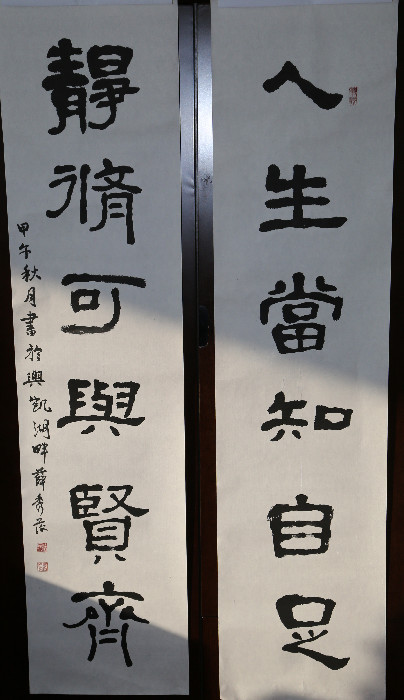 人生當知自足
靜脩可與賢齊
甲午秋月書於興凱湖畔薛秀